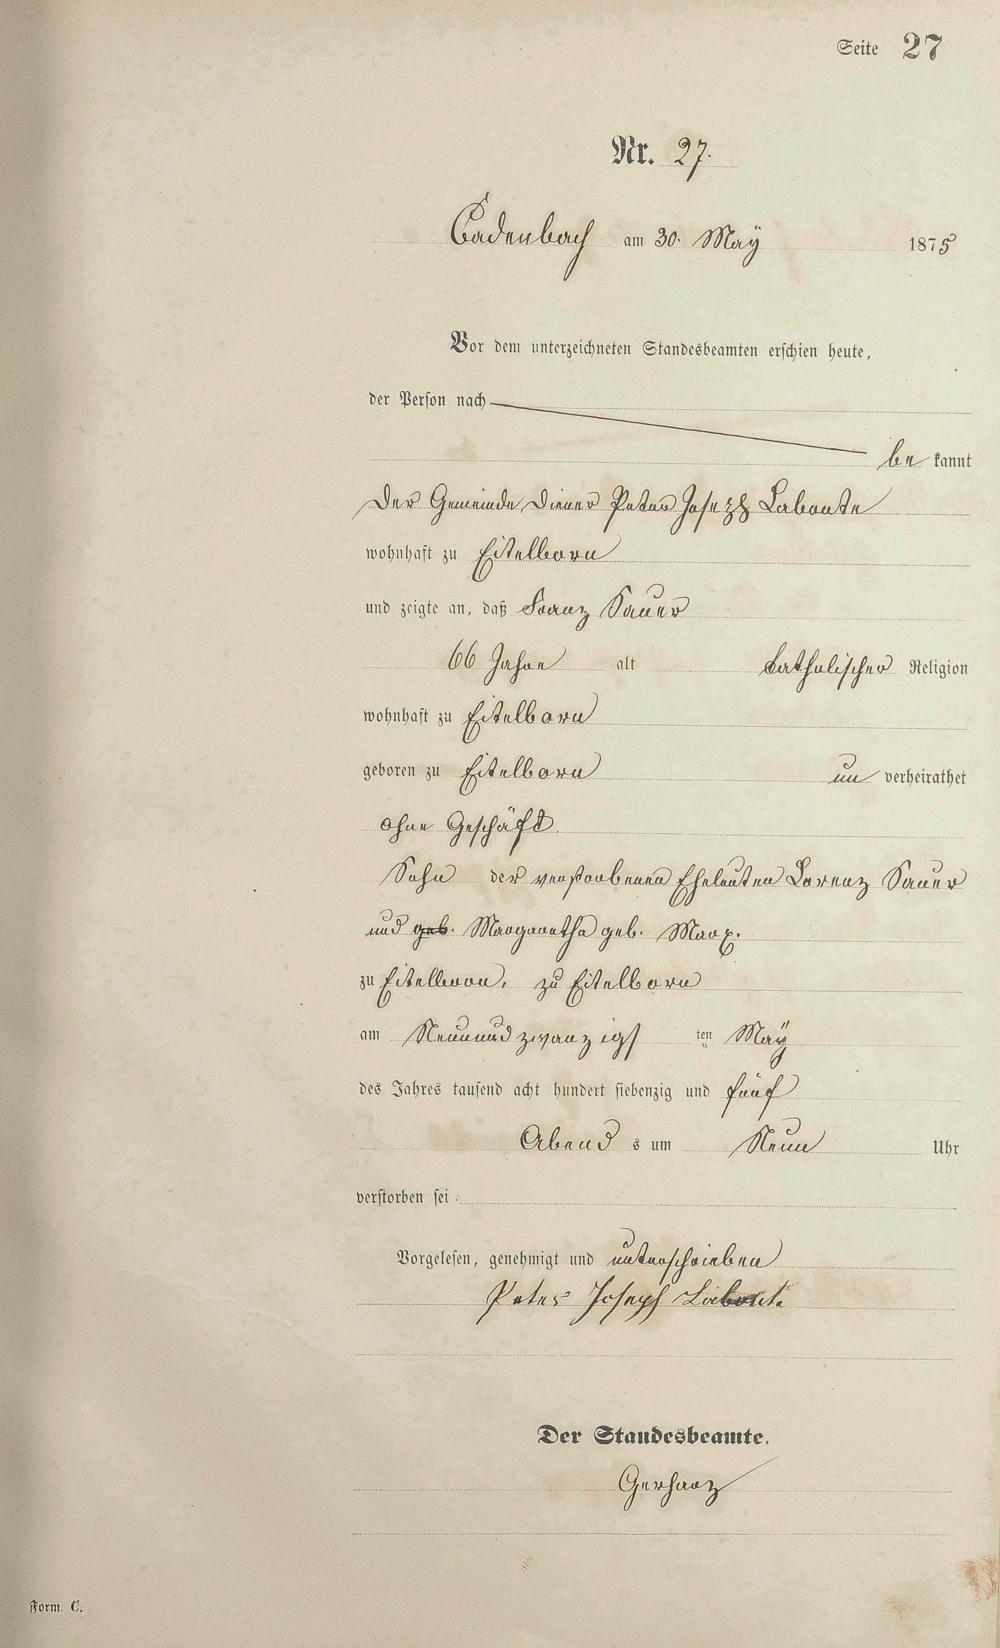 Seite 27
Nr. 27.
Cadenbach am 30. Maÿ 1875
Vor dem unterzeichneten Standesbeamten erschien heute,
der Person nach
be kannt
Der Gemeinde Diener Peter Joseph Labonte
wohnhaft zu Eitelborn
und zeigte an, daß Franz Sauer
66 Jahre alt katholischer Religion
wohnhaft zu Eitelborn
geboren zu Eitelborn un verheirathet
ohne Geschäft.
Sohn der verstorbenen Eheleuten Lorenz Sauer
und geb. Margaretha geb. Marx.
zu Eitelborn, zu Eitelborn
am Neunundzwanzigs ten Maÿ
des Jahres tausend acht hundert siebenzig und fünf
Abend s um Neun Uhr
verstorben sei.
Vorgelesen, genehmigt und unterschrieben
Peter Joseph Labonte
Der Standesbeamte.
Gerharz
Form. C.